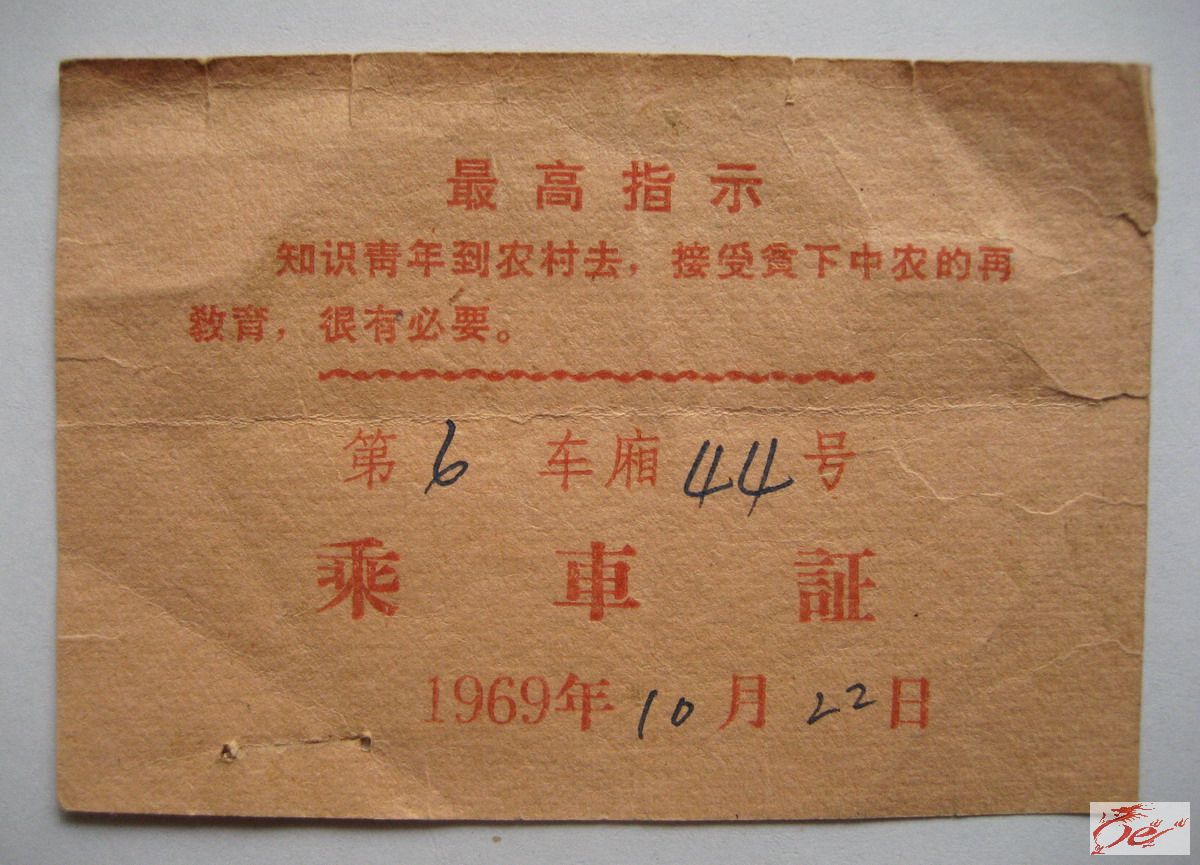 最高指示
知识青年到农村去，接受贫下中农的再
教育，很有必要。
第6车厢44号
乘車証
1969年10月22日